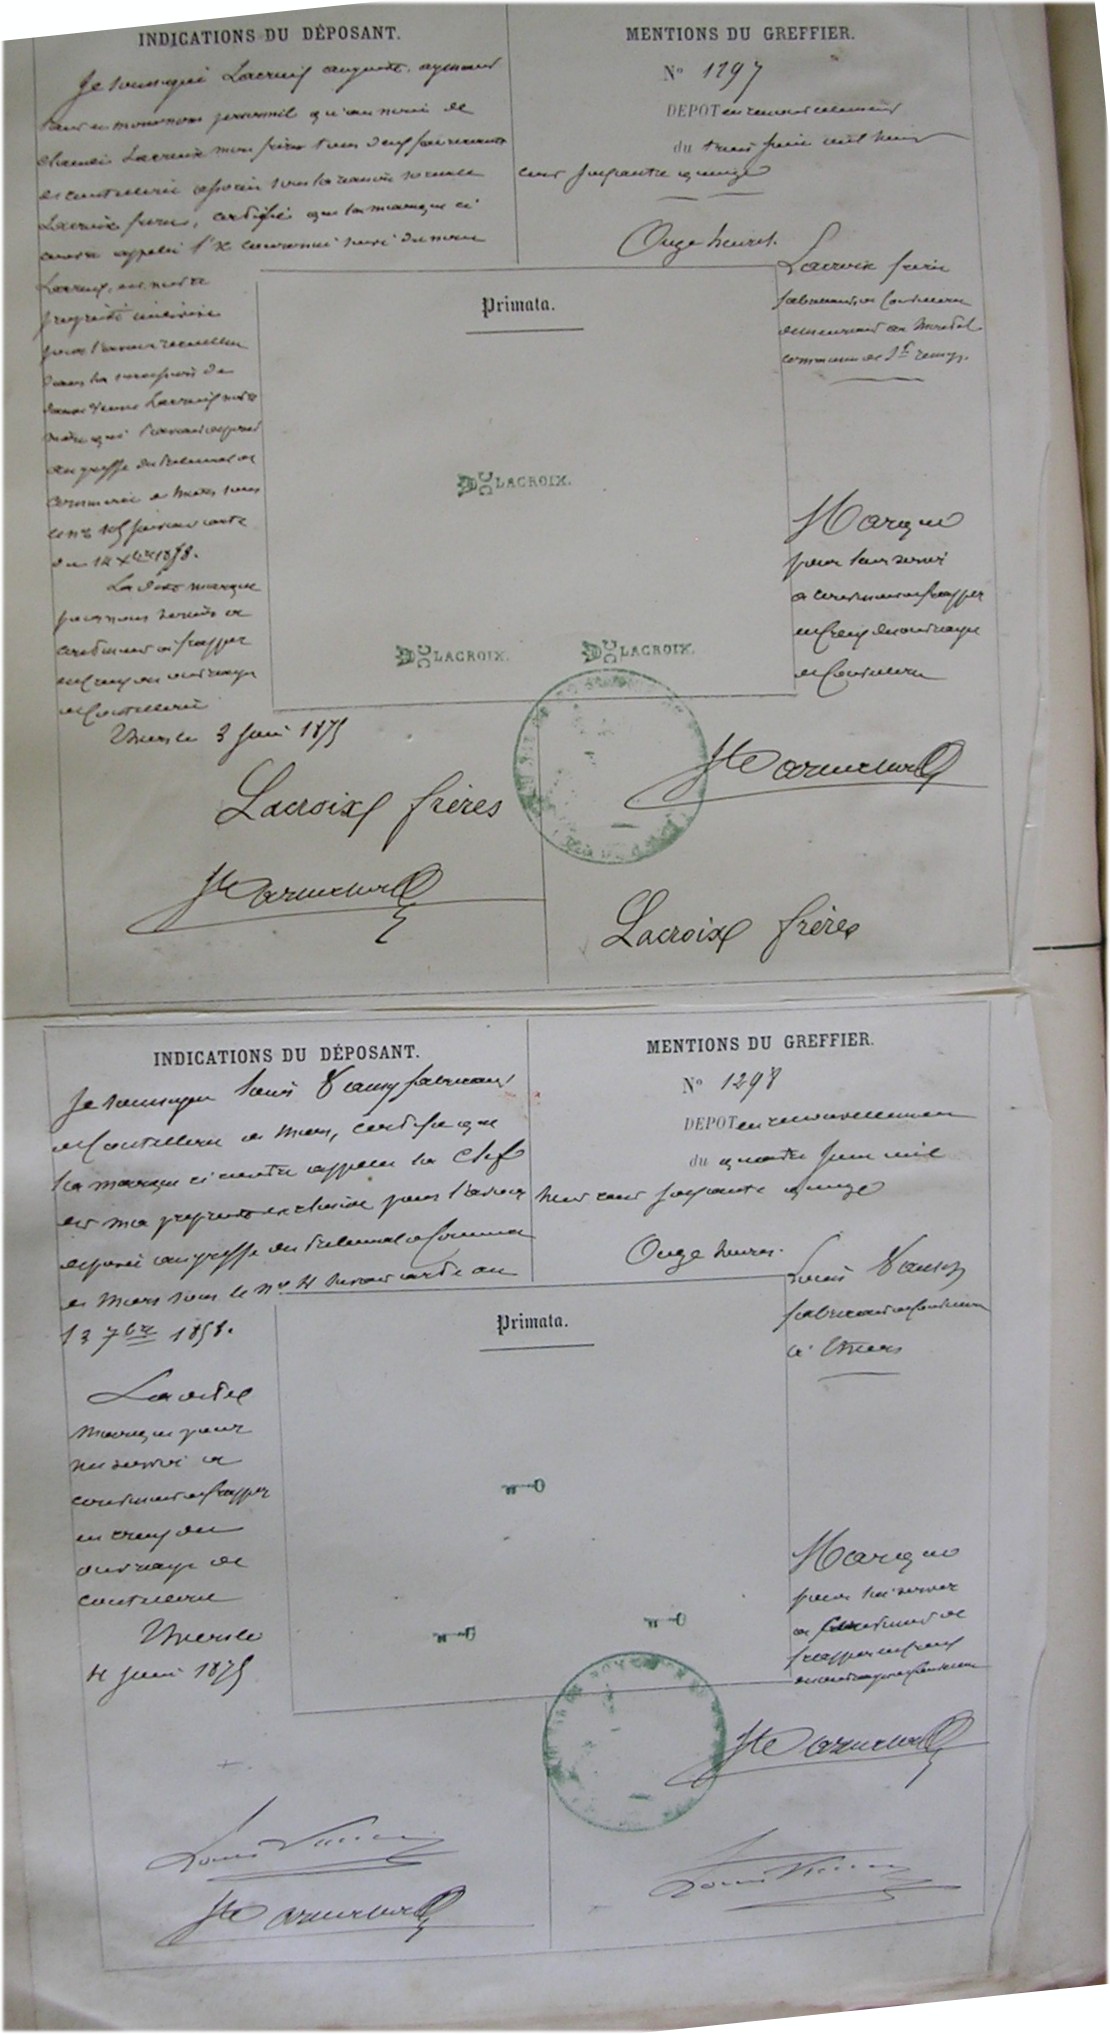 INDICATIONS DU DÉPOSANT.
Je soussigné Lacroix auguste, agissant
tant en mon nom personnel qu'au nom de
Lacroix mon frère tous deux fabricants
de coutellerie associés sous la raison sociale
Lacroix frères, certifie que la marque ci
contre appelée l'X couronné suivi du nom
Lacroix, est notre
propriété exclusive
pour l'avoir recueillie
dans la succession de
dame Veuve Lacroix notre
mère qui l'avait déposé
au greffe du tribunal de
commerce de Thiers sous
le no
du 14 1858.
La dite marque
pour nous servir et
continuer à frapper
en creux des ouvrages
de Coutellerie
Thiers le 3 Juin 1875
Lacroix frères
MENTIONS DU GREFFIER.
No 1297
DEPOT en renouvellement
du trois juin mil huit
cent soixante quinze
Onze heures.
Lacroix frères
fabricants de Coutellerie
demeurant au
commune de St Remy.
Primata.
LACROIX.
LACROIX.
LACROIX.
Marque
pour leur servir
à continuer à frapper
en creux des ouvrages
de Coutellerie
Lacroix frères
INDICATIONS DU DÉPOSANT.
Je soussigné Louis fabricant
de Coutellerie à Thiers, certifie que
la marque ci contre appelée la Clef
est ma propriété exclusive pour l'avoir
déposée au greffe du tribunal de Commerce
de Thiers sous le no 4 suivant acte du
13 7bre 1858.
La dite
marque pour
me servir et
continuer à frapper
en creux des
ouvrages de
coutellerie
Thiers le
4 Juin 1875
MENTIONS DU GREFFIER.
No 1298
DEPOT en renouvellement
du quatre Juin mil
huit cent soixante quinze
Onze heures.
Louis
fabricant de Coutellerie
à Thiers
Primata.
Marque
pour lui servir
à continuer de
frapper en creux
des ouvrages de Coutellerie